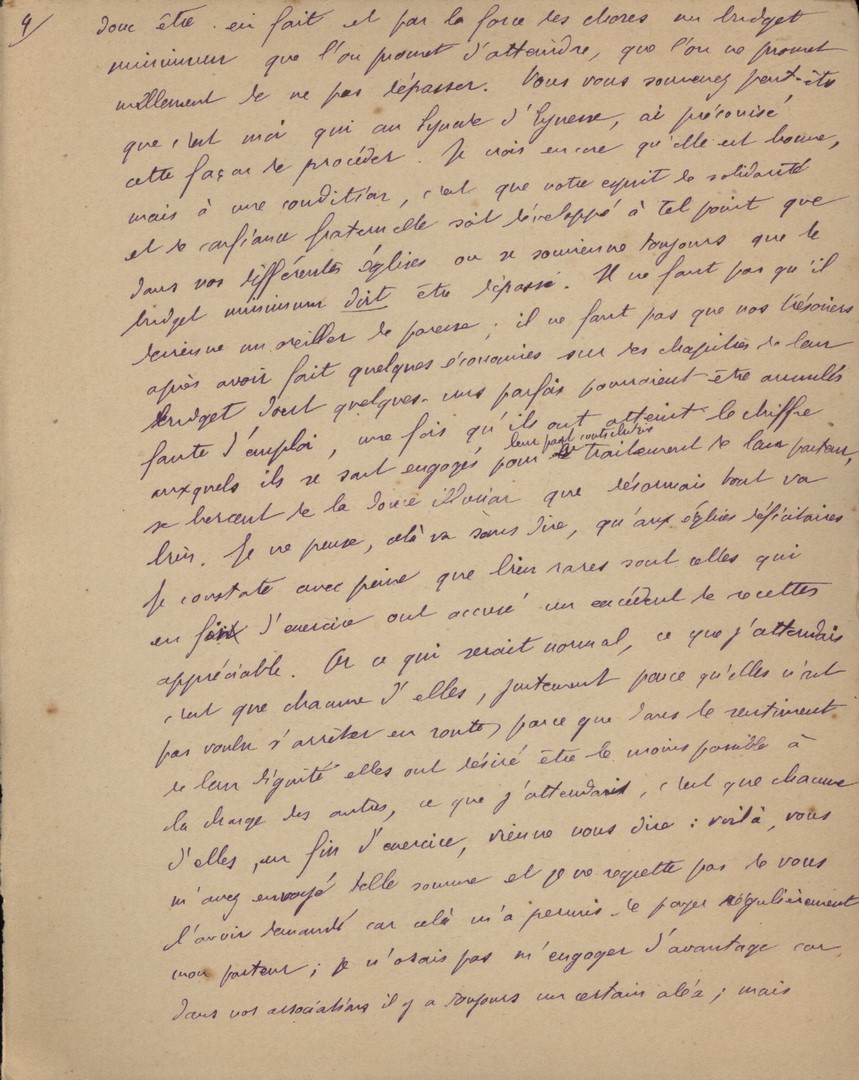 9/
donc être en fait et par la force des choses un budget
minimum que l'on promet d'atteindre, que l'on ne promet
nullement de ne pas dépasser. Vous vous souvenez peut-être
que c'est moi qui au Synode d'Eynesse, ai préconisé
cette façon de procéder. Je crois encore qu'elle est bonne,
mais à une condition, c'est que votre esprit de solidarité
et de confiance fraternelle soit développé à tel point que
dans vos différentes églises on se souvienne toujours que le
budget minimum doit être dépassé. Il ne faut pas qu'il
devienne un oreiller de paresse ; il ne faut pas que nos trésoriers
après avoir fait quelques économies sur des chapitres de leur
budget dont quelques-uns parfois pourraient être annulés
faute d'emploi, une fois qu'ils ont atteint le chiffre
leur part contributive
auxquels ils se sont engagés pour le traitement de leur pasteur,
se bercent de la douce illusion que désormais tout va
bien. Je ne pense, celà va sans dire, qu'aux églises déficitaires
Je constate avec peine que bien rares sont celles qui
en fin d'exercice ont accusé un excédent de recettes
appréciable. Or ce qui serait normal, ce que j'attendais
c'est que chacune d'elles, justement parce qu'elles n'ont
pas voulu s'arrêter en route, parce que dans le sentiment
de leur dignité elles ont désiré être le moins possible à
la charge des autres, ce que j'attendais, c'est que chacune
d'elles, en fin d'exercice, vienne nous dire : voilà, vous
m'avez envoyé telle somme et je ne regrette pas de vous
l'avoir demandé car celà m'a permis de payer régulièrement
mon pasteur ; je n'osais pas m'engager d'avantage car
dans nos associations il y a toujours un certain aléa ; mais